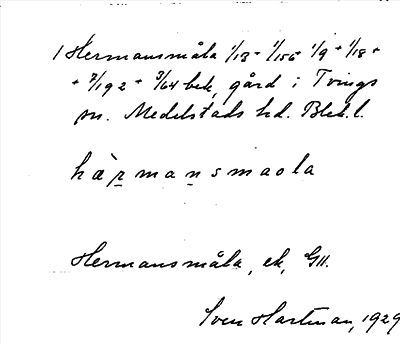 1 Hermansmåla 1/13 + 1/156 + 1/9 + 1/18 +
+ 7/192 + 3/64 bek, gård i Tvings
sn. Medelstads hd. Blek. l.
hærmansmaola
Hermansmåla, ek, GII.
Sven Hartman, 1929